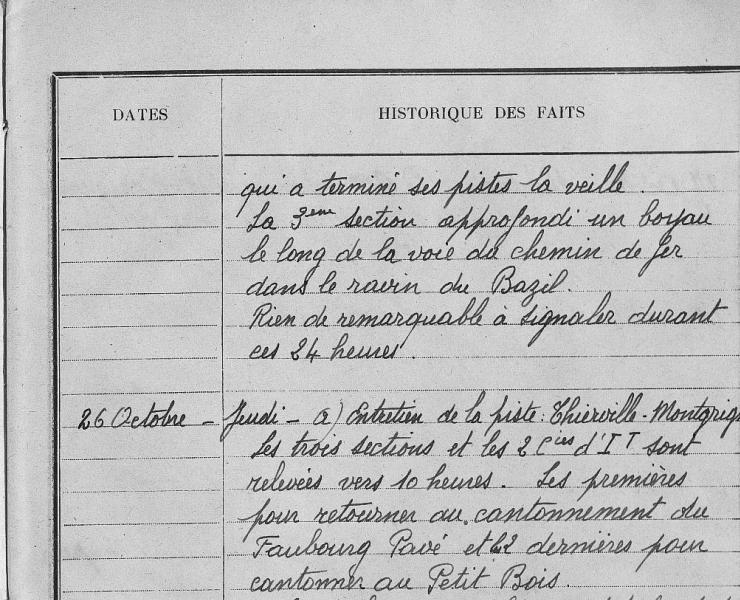 DATES
HISTORIQUE DES FAITS
qui a terminé ses pistes la veille.
La 3ème section approfondi un boyau
le long de la voie du chemin de fer
dans le ravin du Bazil.
Rien de remarquable à signaler durant
ces 24 heures.
26 Octobre - Jeudi - a) Entretien de la piste: Thierville-Montgrig
Les trois sections et les 2 Cies d'IT sont
relevées vers 10 heures. Les premières
pour retourner au cantonnement du
Faubourg Pavé et les 2 dernières pour
cantonner au Petit Bois.